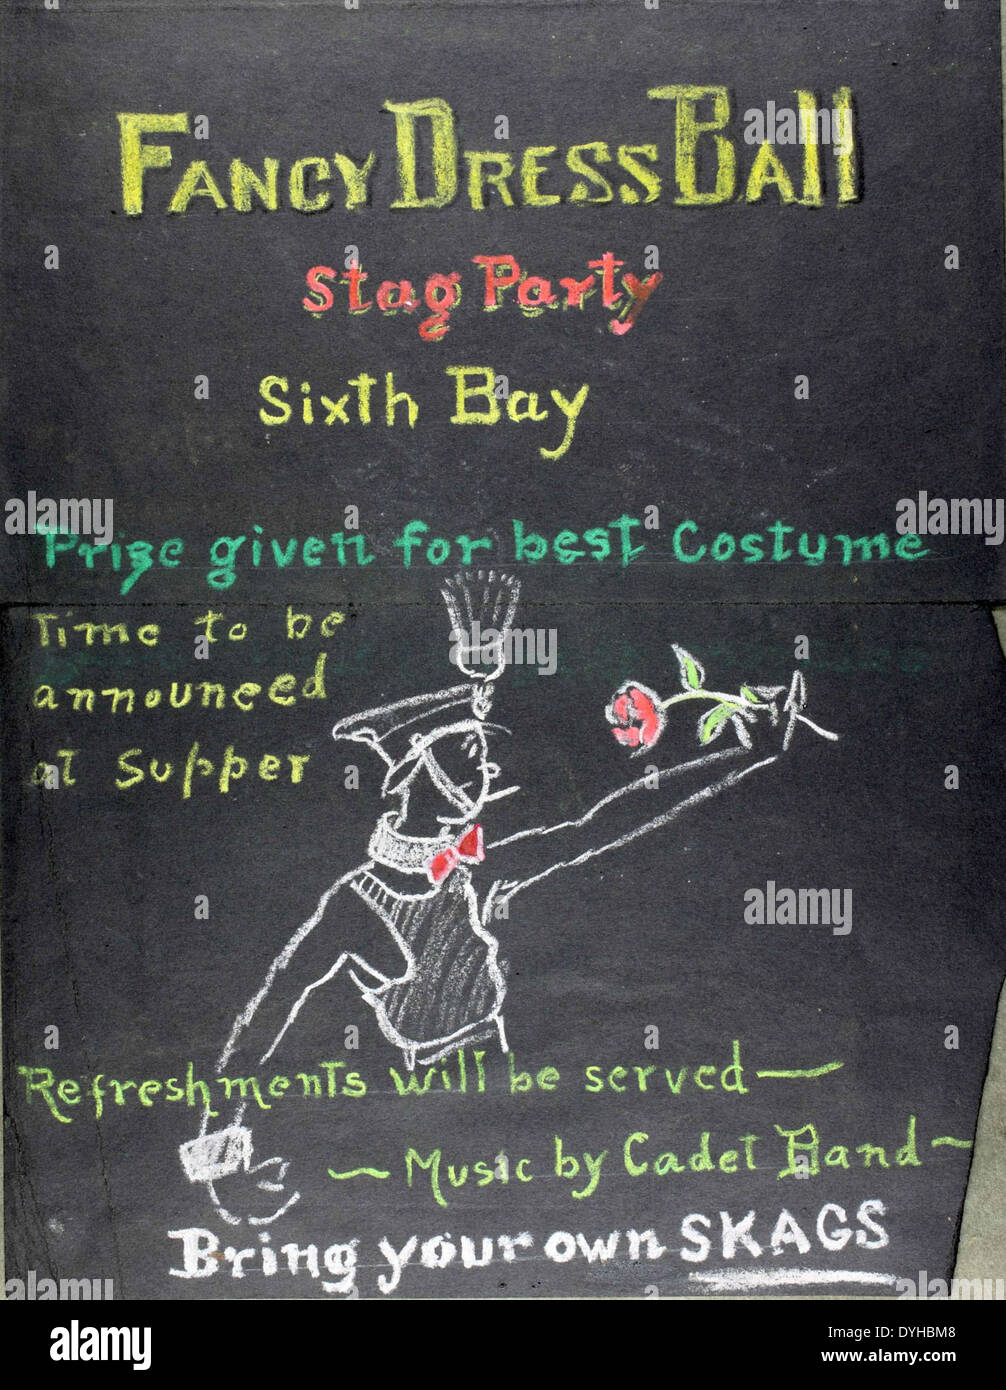 FANCY DRESS BAll
Stag Party
Sixth Bay
Prize given for best Costume
Time to be
announced
at Supper
Refreshments will be served —
~ Music by Cadet Band ~
Bring your own SKAGS
alamy
Image ID: DYHBM8
www.alamy.com